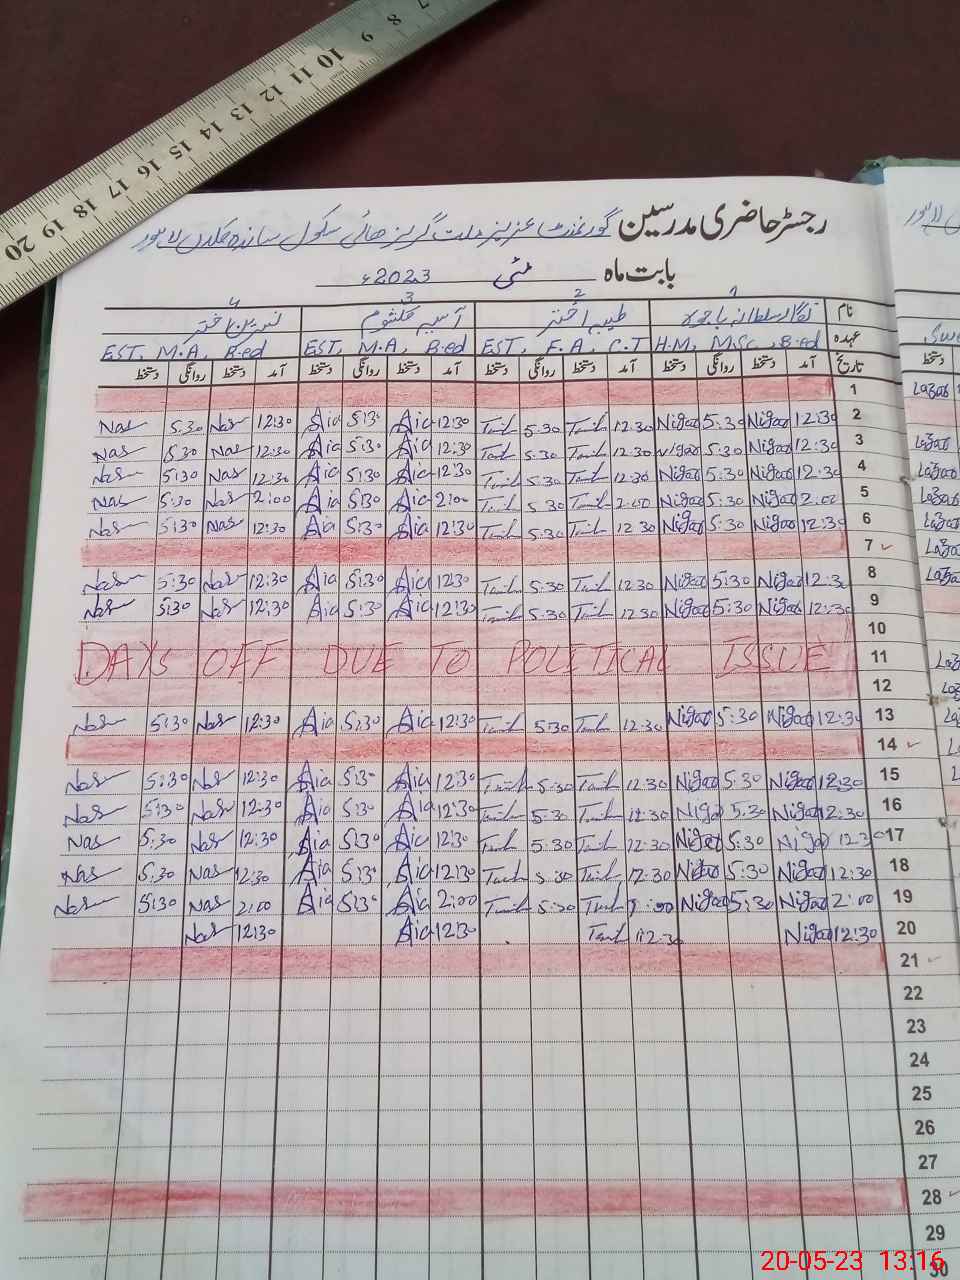 20 19 18 17 16 15 14 13 12 11 10 9 8 7
رجسٹر حاضری مدرسین گورنمنٹ عزیز ملت گرلز ھائی سکول ساندہ کلاں لاہور
بابت ماہ مئی 2023ء
1 2 3 4
نام طیبہ اختر آسیہ کلثوم نسرین اختر
عہدہ H.M, M.Sc, B.ed EST, F.A, C.T EST, M.A, B.ed EST, M.A, B.ed
تاریخ آمد دستخط روانگی دستخط آمد دستخط روانگی دستخط آمد دستخط روانگی دستخط آمد دستخط روانگی دستخط
1
Nas 5:30 Nas 12:30 Aia 5:30 Aia 12:30 Taib 5.30 Taib 12.30 Nigar 5:30 Nigar 12:30 2
Nas 5:30 Nas 12:30 Aia 5:30 Aia 12:30 Taib 5.30 Taib 12.30 Nigar 5:30 Nigar 12:30 3
Nas 5:30 Nas 12:30 Aia 5:30 Aia 12:30 Taib 5:30 Taib 12:30 Nigar 5:30 Nigar 12:30 4
Nas 5:30 Nas 2:00 Aia 5:30 Aia 2:00 Taib 5.30 Taib 2:00 Nigar 5:30 Nigar 2:00 5
Nas 5:30 Nas 12:30 Aia 5:30 Aia 12:30 Taib 5:30 Taib 12 30 Nigar 5:30 Nigar 12:30 6
7
Nas 5:30 Nas 12:30 Aia 5:30 Aia 12:30 Taib 5:30 Taib 12.30 Nigar 5:30 Nigar 12:30 8
Nas 5:30 Nas 12:30 Aia 5:30 Aia 12:30 Taib 5.30 Taib 12.30 Nigar 5:30 Nigar 12:30 9
10
DAYS OFF DUE TO POLITICAL ISSUE 11
12
Nas 5:30 Nas 12:30 Aia 5:30 Aia 12:30 Taib 5.30 Taib 12.30 Nigar 5:30 Nigar 12:30 13
14
Nas 5:30 Nas 12:30 Aia 5:30 Aia 12:30 Taib 5:30 Taib 12:30 Nigar 5:30 Nigar 12:30 15
Nas 5:30 Nas 12:30 Aia 5:30 Aia 12:30 Taib 5:30 Taib 12:30 Nigar 5:30 Nigar 12:30 16
Nas 5:30 Nas 12:30 Aia 5:30 Aia 12:30 Taib 5:30 Taib 12:30 Nigar 5:30 Nigar 12:30 17
Nas 5:30 Nas 12:30 Aia 5:30 Aia 12:30 Taib 5:30 Taib 12:30 Nigar 5:30 Nigar 12:30 18
Nas 5:30 Nas 2:00 Aia 5:30 Aia 2:00 Taib 5:30 Taib Nigar 5:30 Nigar 2:00 19
Nas 12:30 Aia 12:30 Taib 12:30 Nigar 12:30 20
21
22
23
24
25
26
27
28
29
30
20-05-23 13:16